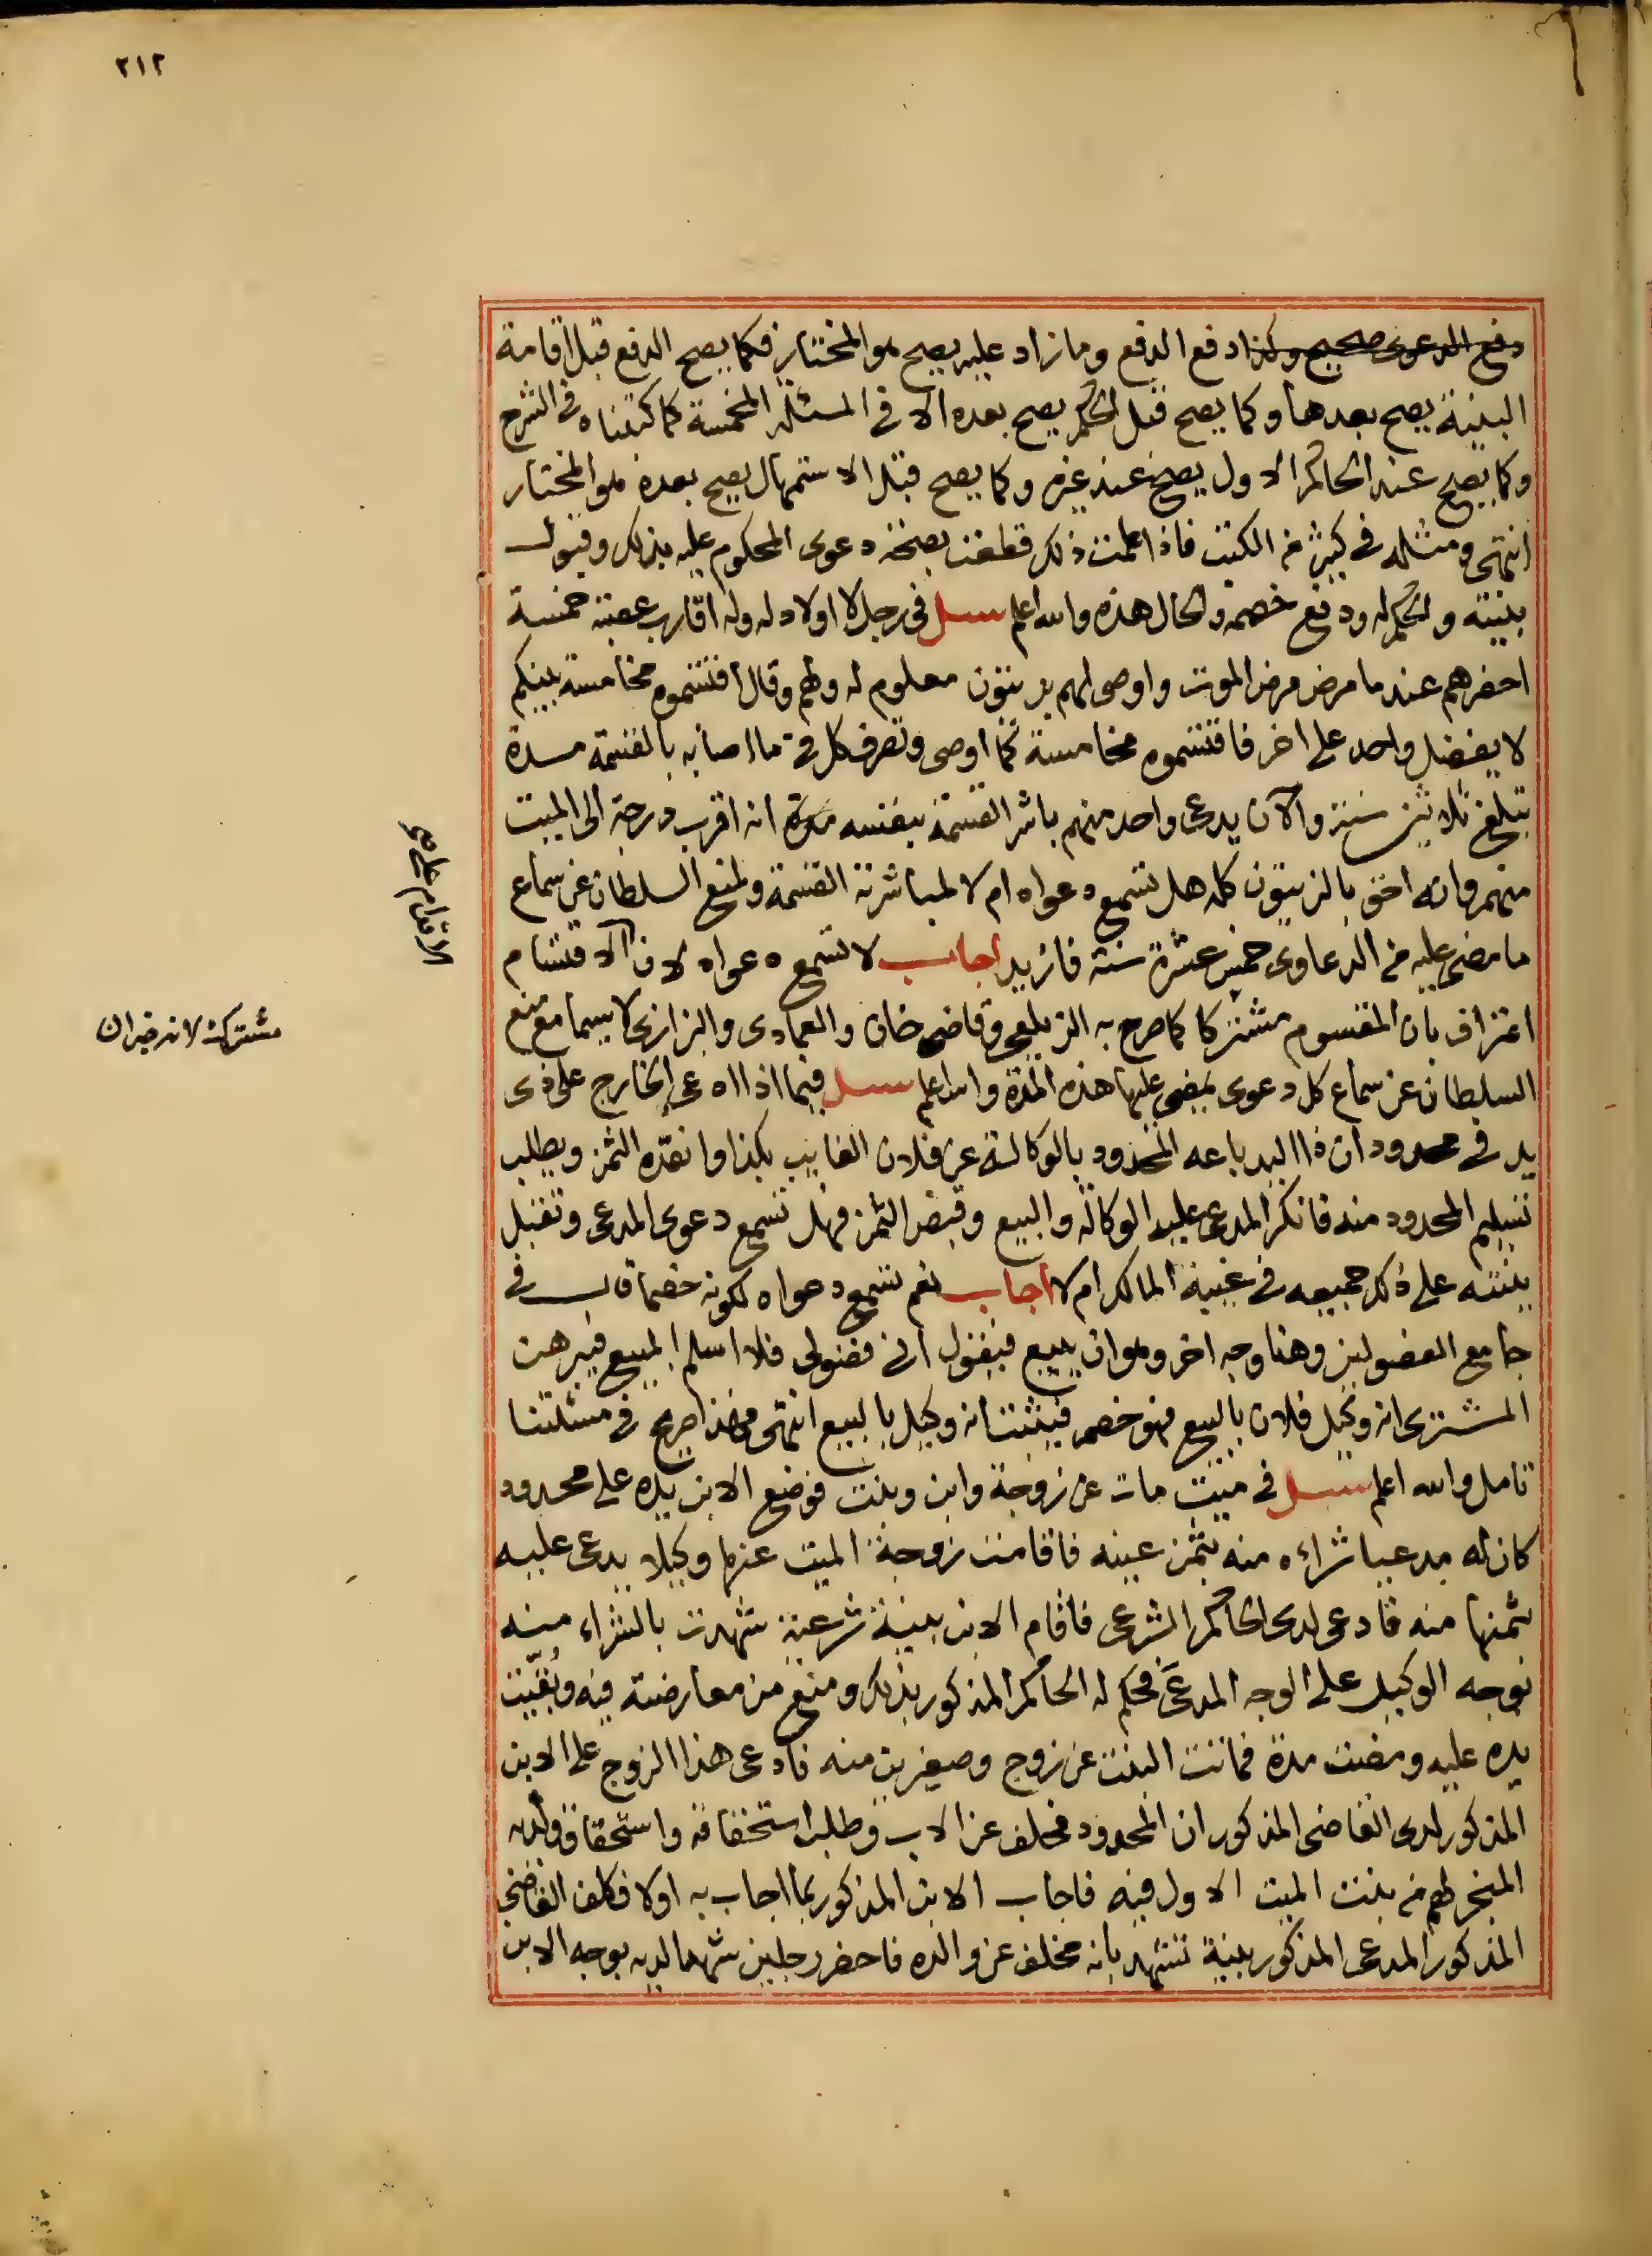 ٢١٢
دفع الدعوى صحيح وكذا دفع الدفع وما زاد عليه يصح هو المختار فكما يصح الدفع قبل اقامة
البينة يصح بعدها وكما يصح قبل الحكم يصح بعده الا في المسئلة المخمسة كما كتبناه في الشرح
وكما يصح عند الحاكم الاول يصح عند غيره وكما يصح قبل الاستمهال يصح بعده هو المختار
انتهى ومثله في كثير من الكتب فاذا علمت ذلك قطعت بصحة دعوى المحكوم عليه بذلك وقبول
بينته والحكم له ودفع خصمه والحال هذه والله اعلم سئل في رجل لا اولاد له وله اقارب عصبة خمسة
احضرهم عند ما مرض مرض الموت واوصى لهم بزيتون معلوم له ولهم وقال اقتسموه مخامسة بينكم
لا يفضل واحد على اخر فاقتسموه مخامسة كما اوصى وتصرف كل في ما اصابه بالقسمة مدة
تبلغ ثلاثين سنة والآن يدعى واحد منهم باشر القسمة بنفسه انه اقرب درجة الى الميت
منهم وانه احق بالزيتون كله هل تسمع دعواه ام لا لمباشرته القسمة ولمنع السلطان عن سماع
ما مضى عليه من الدعاوى خمس عشرة سنة فازيد اجاب لا تسمع دعواه لان الاقتسام
اعتراف بان المقسوم مشتركا كما صرح به الزيلعى وقاضى خان والعمادى والبزازى لا سيما مع منع
السلطان عن سماع كل دعوى يمضى عليها هذه المدة والله اعلم سئل فيما اذا ادعى الخارج على ذى
يد في محدود ان ذا اليد باعه المحدود بالوكالة عن فلان الغايب بكذا وانقده الثمن ويطلب
تسليم المحدود منه فانكر المدعى عليه الوكالة والبيع وقبض الثمن فهل تسمع دعوى المدعى وتقبل
بينته على ذلك جميعه في غيبة المالك ام لا اجاب نعم تسمع دعواه لكونه خصما قال في
جامع الفصولين وهنا وجه اخر وهو ان يبيع فيقول انى فضولى فلا اسلم المبيع فيبرهن
المشترى انه وكيل فلان بالبيع فهو خصم فيثبت انه وكيل بالبيع انتهى فهذا صريح في مسئلتنا
تامل والله اعلم سئل في ميت مات عن زوجة وابن وبنت فوضع الابن يده على محدود
كان له مدعيا شراءه منه بثمن عينه فاقامت زوجة الميت عنها وكيلا يدعى عليه
بثمنها منه فادعى لدى الحاكم الشرعى فاقام الابن بينة شرعية شهدت بالشراء منه
بوجه الوكيل على الوجه المدعى فحكم له الحاكم المذكور بذلك ومنع من معارضته فيه وبقيت
يده عليه ومضت مدة فماتت البنت عن زوج وصغيرين منه فادعى هذا الزوج على الابن
المذكور لدى القاضى المذكور ان المحدود مخلف عن الاب وطلب استحقاقه واستحقاق ولديه
المنجر لهم من بنت الميت الاول فيه فاجاب الابن المذكور بما اجاب به اولا فكلف القاضى
المذكور المدعى المذكور بينة تشهد بانه مخلف عن والده فاحضر رجلين شهدا لديه بوجه الابن
مشتركة لانه خبر ان